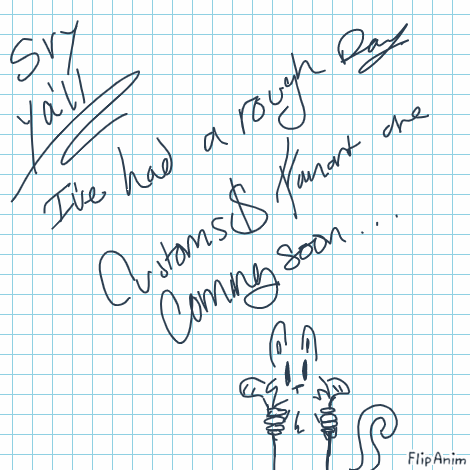 Sry
Ya'll
I've had a rough Day
Customs & Fanart are
Coming soon...
FlipAnim